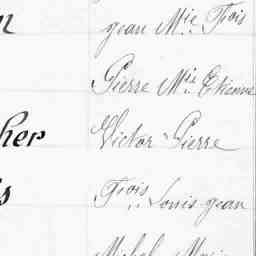 n jean Mie Frois
Pierre Mie Etienne
her Victor Pierre
s Frois Louis jean
Michel